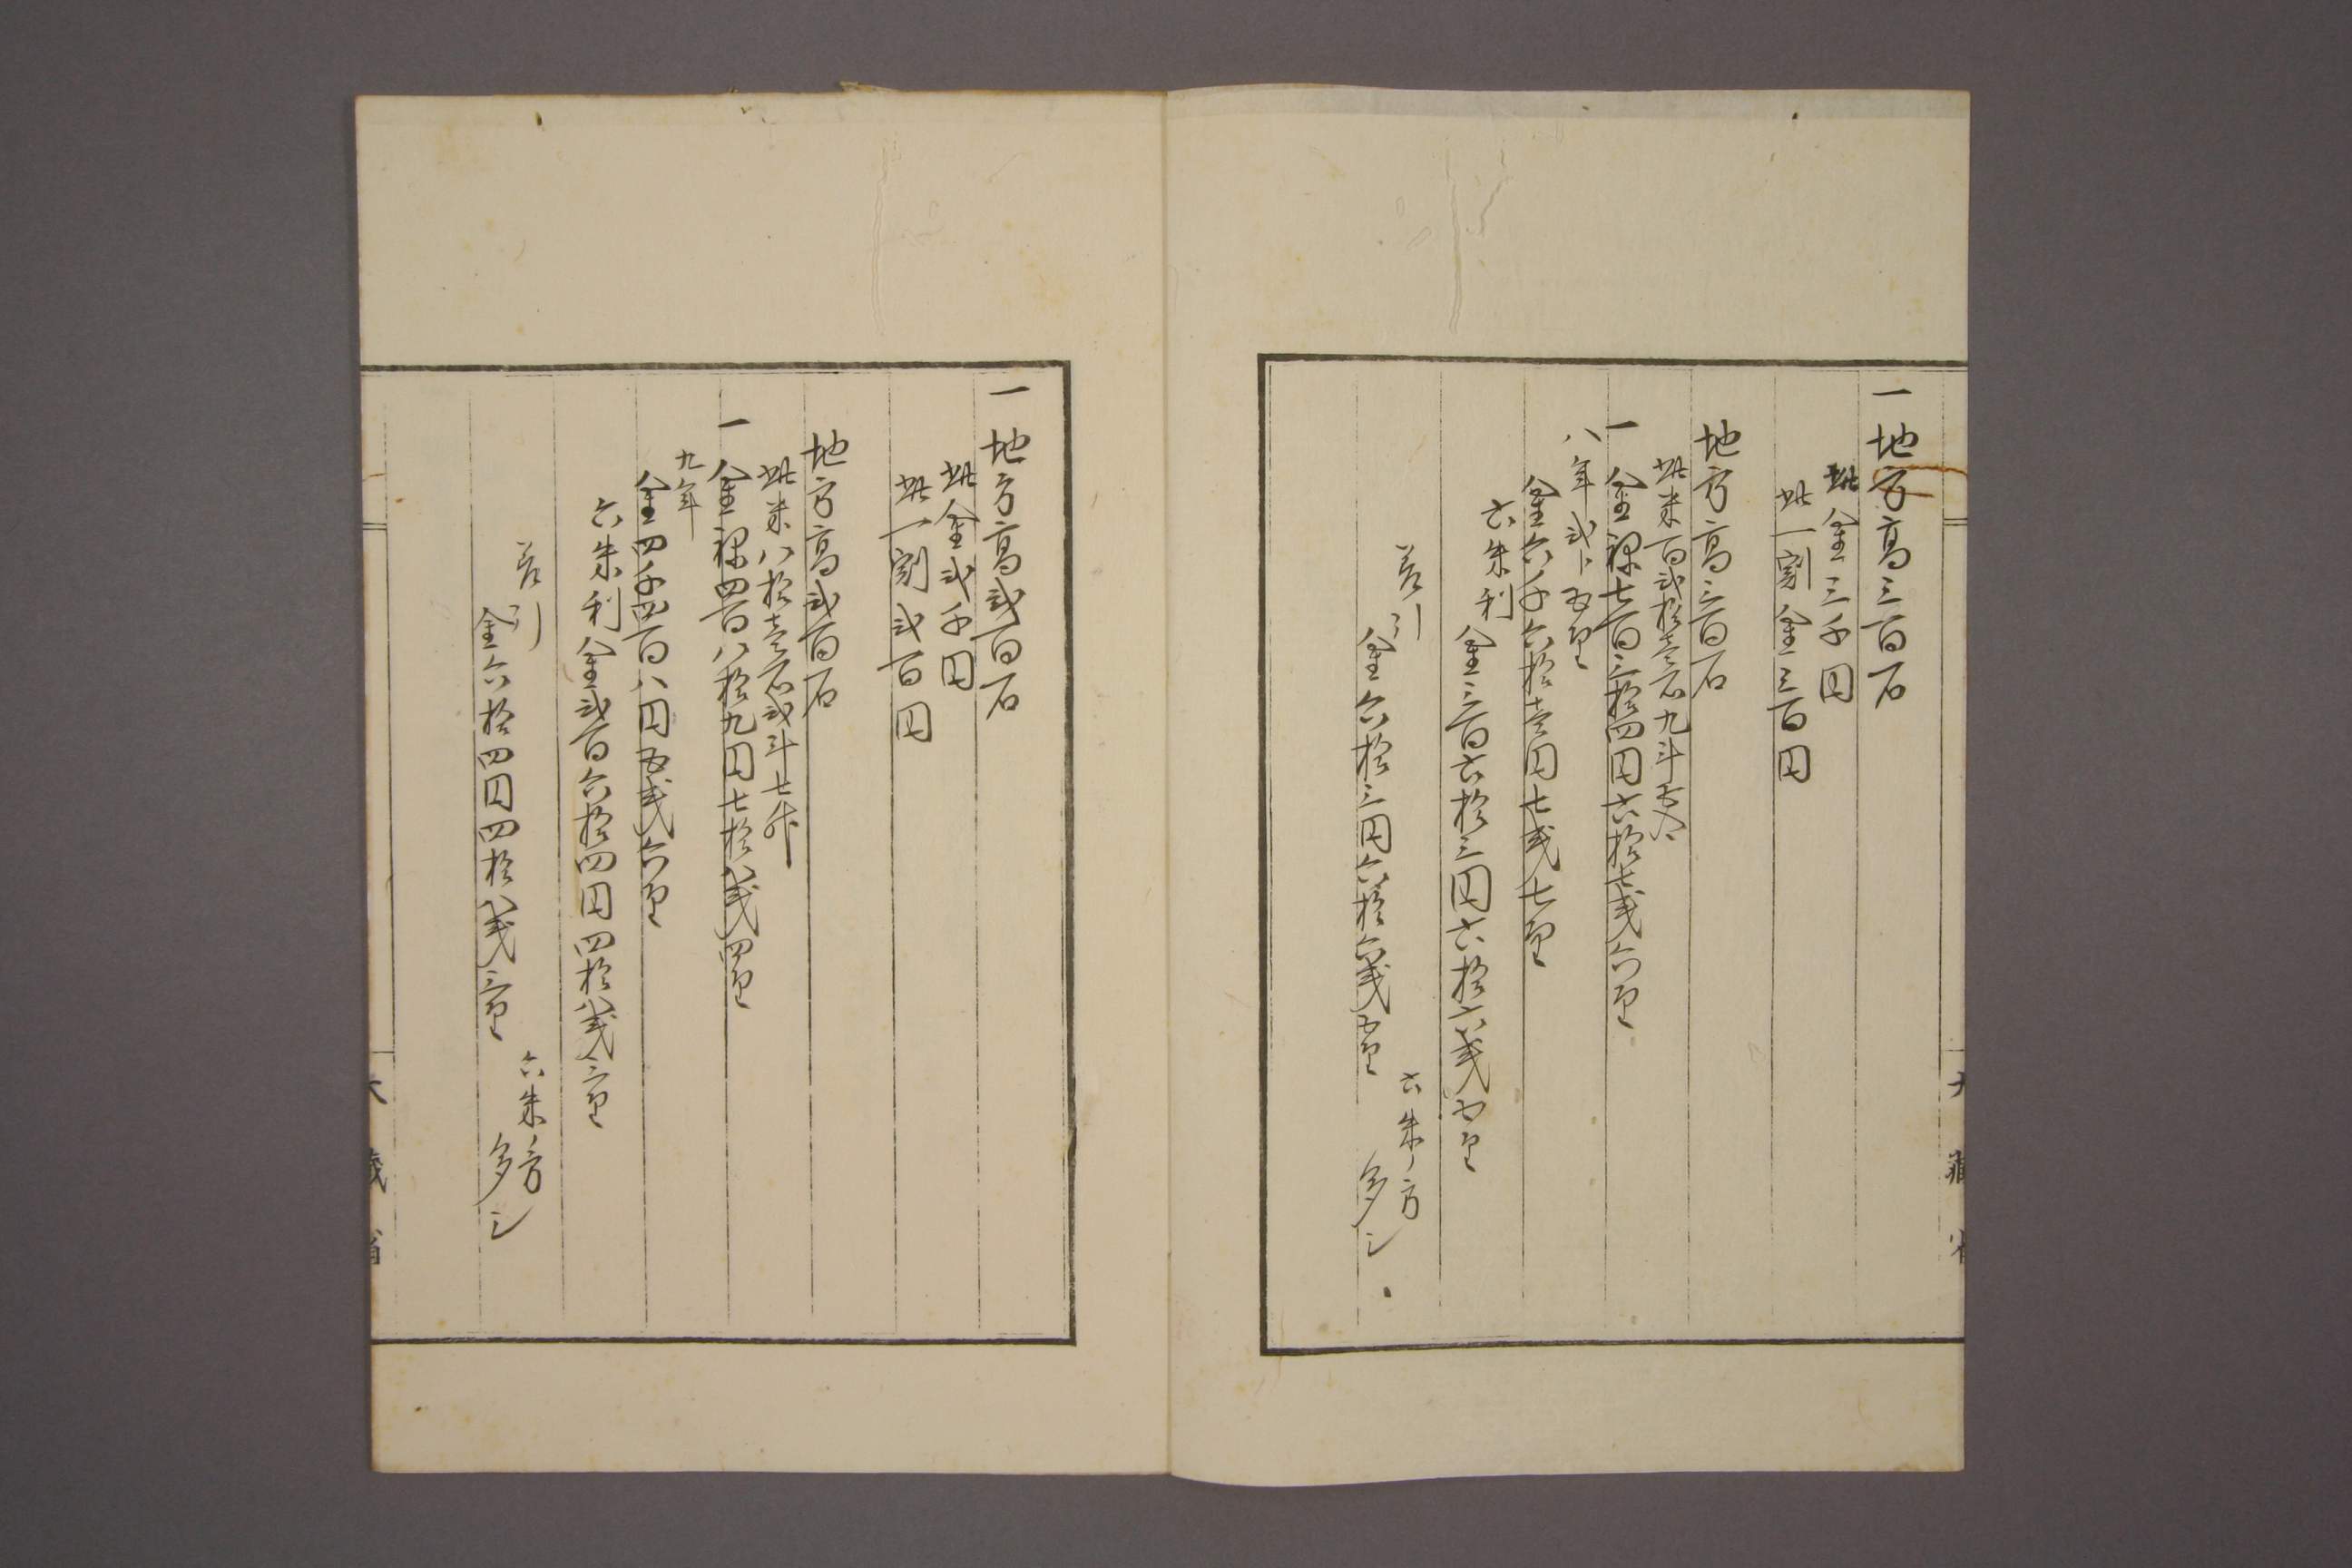 一 地方高三百石
此金三千円
此一割金三百円
地方高三百石
此米百弐拾壱石九斗五合
一 金禄七百三拾四円六拾七銭六厘
八年弐分五厘
金六千六拾壱円七銭七厘
六朱利
金三百六拾三円六拾六銭五厘
差引
金六拾三円六拾六銭五厘
六朱ノ方
多シ
大藏省
一 地方高弐百石
此金弐千円
此一割弐百円
地方高弐百石
此米八拾壱石弐斗七升
一 金禄四百八拾九円七拾八銭四厘
九年
金四千四百八円五銭六厘
六朱利金弐百六拾四円四拾八銭三厘
差引
金六拾四円四拾八銭三厘
六朱ノ方
多シ
大藏省